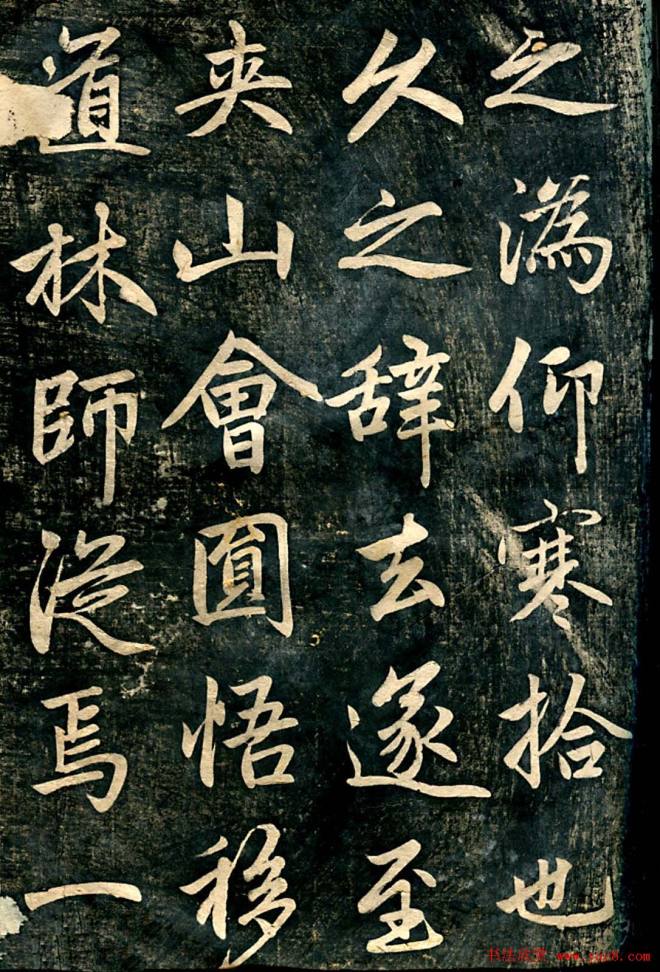 之溈仰寒拾也
久之辭去遂至
夾山會圓悟移
道林師從焉一
书法欣赏 www.yac8.com